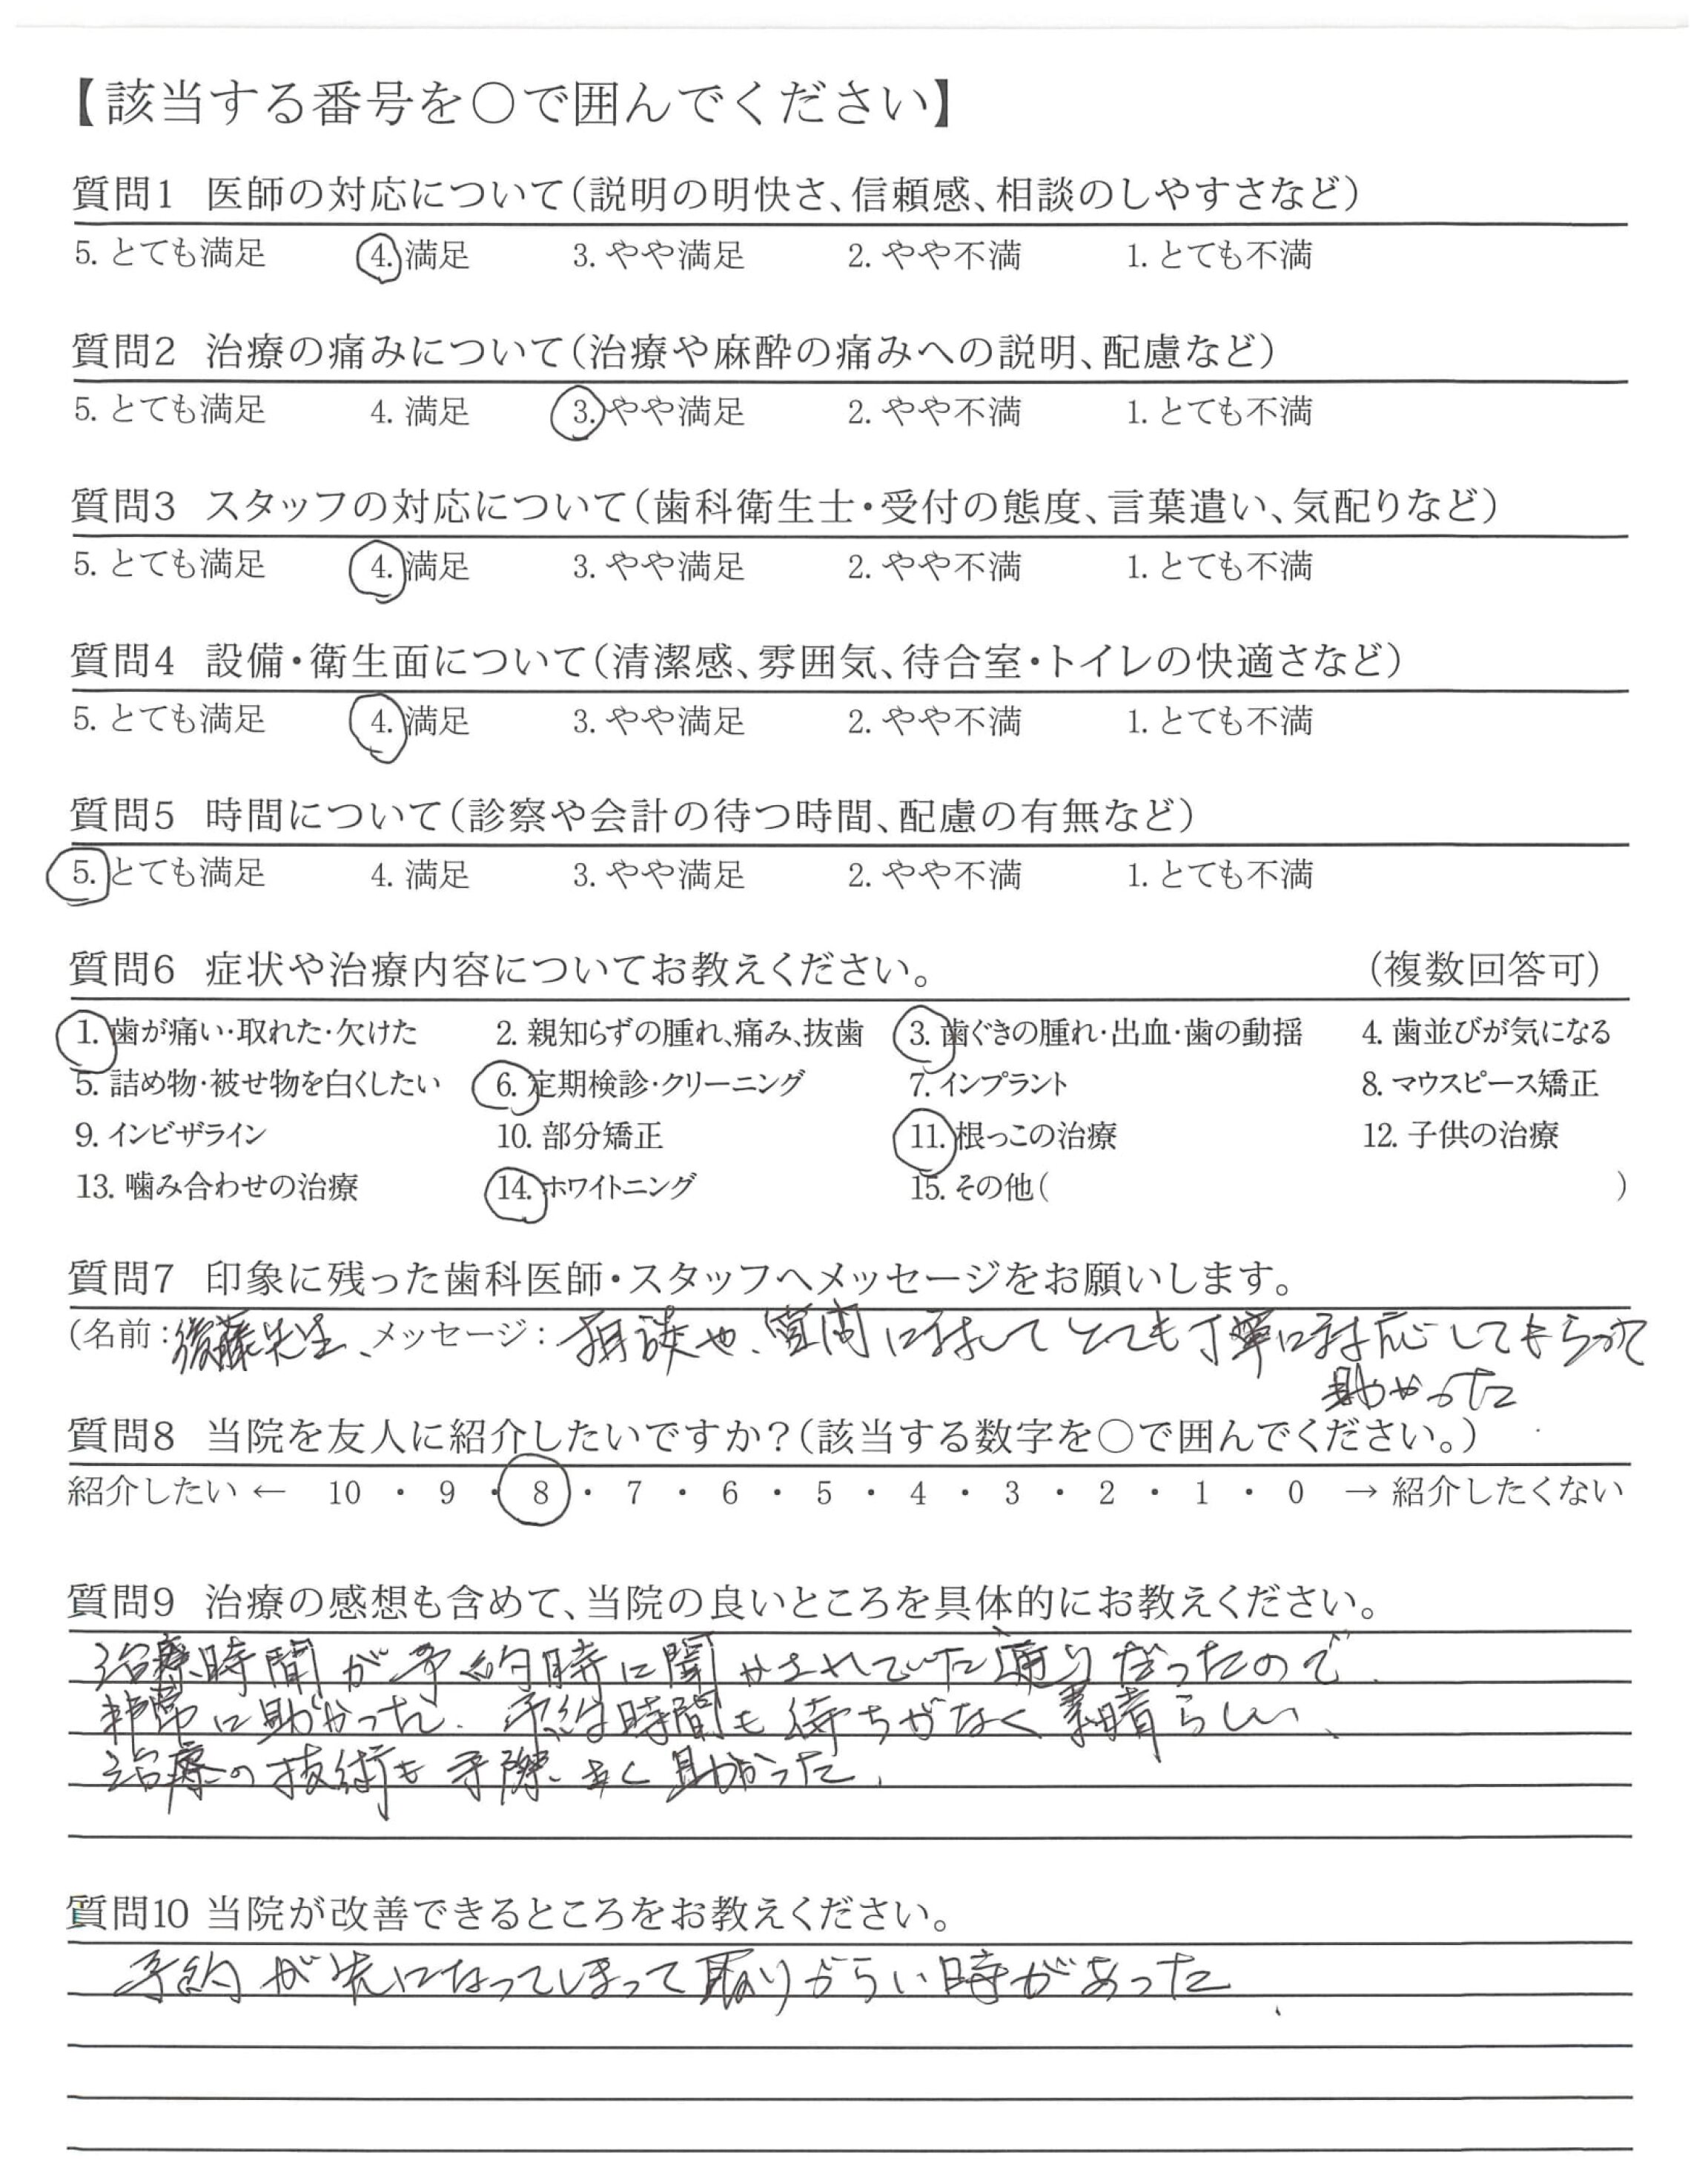 【該当する番号を○で囲んでください】
質問1 医師の対応について(説明の明快さ、信頼感、相談のしやすさなど)
5. とても満足 4. 満足 3. やや満足 2. やや不満 1. とても不満
質問2 治療の痛みについて(治療や麻酔の痛みへの説明、配慮など)
5. とても満足 4. 満足 3. やや満足 2. やや不満 1. とても不満
質問3 スタッフの対応について(歯科衛生士・受付の態度、言葉遣い、気配りなど)
5. とても満足 4. 満足 3. やや満足 2. やや不満 1. とても不満
質問4 設備・衛生面について(清潔感、雰囲気、待合室・トイレの快適さなど)
5. とても満足 4. 満足 3. やや満足 2. やや不満 1. とても不満
質問5 時間について(診察や会計の待つ時間、配慮の有無など)
5. とても満足 4. 満足 3. やや満足 2. やや不満 1. とても不満
質問6 症状や治療内容についてお教えください。 (複数回答可)
1. 歯が痛い・取れた・欠けた 2. 親知らずの腫れ、痛み、抜歯 3. 歯ぐきの腫れ・出血・歯の動揺 4. 歯並びが気になる
5. 詰め物・被せ物を白くしたい 6. 定期検診・クリーニング 7. インプラント 8. マウスピース矯正
9. インビザライン 10. 部分矯正 11. 根っこの治療 12. 子供の治療
13. 噛み合わせの治療 14. ホワイトニング 15. その他( )
質問7 印象に残った歯科医師・スタッフへメッセージをお願いします。
(名前:後藤先生、メッセージ:相談や、質問に対してとても丁寧に対応してもらって
助かった
質問8 当院を友人に紹介したいですか?(該当する数字を○で囲んでください。)
紹介したい ← 10 ・ 9 ・ 8 ・ 7 ・ 6 ・ 5 ・ 4 ・ 3 ・ 2 ・ 1 ・ 0 → 紹介したくない
質問9 治療の感想も含めて、当院の良いところを具体的にお教えください。
治療時間が予約時に聞かされていた通りだったので、
非常に助かった。予約時間も待ちがなく素晴らしい、
治療の技術も手際よく助かった。
質問10 当院が改善できるところをお教えください。
予約が先になってしまって取りづらい時があった、